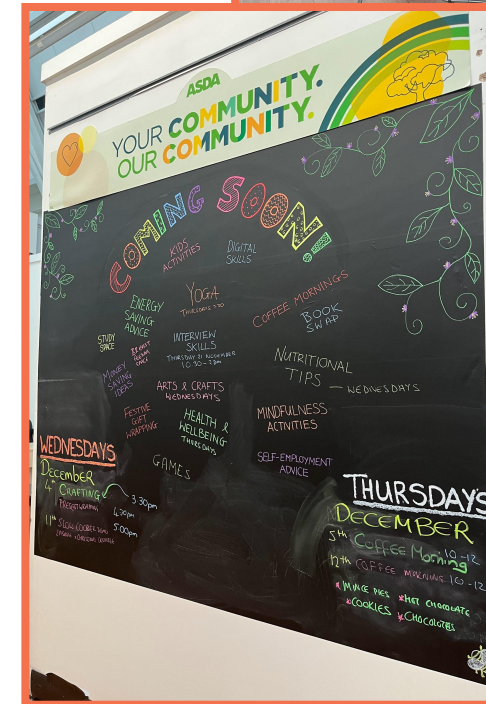 ASDA
YOUR COMMUNITY.
OUR COMMUNITY.
COMING SOON!
KIDS
ACTIVITIES
DIGITAL
SKILLS
YOGA
THURSDAYS
COFFEE MORNINGS
ENERGY
SAVING
ADVICE
BOOK
SWAP
STUDY
SPACE
INTERVIEW
SKILLS
THURSDAY 21 NOVEMBER
10:30-2pm
MONEY
SAVING
IDEAS
NUTRITIONAL
TIPS - WEDNESDAYS
ARTS & CRAFTS
WEDNESDAYS
FESTIVE
GIFT
WRAPPING
HEALTH &
WELLBEING
THURSDAYS
MINDFULNESS
ACTIVITIES
GAMES
SELF-EMPLOYMENT
ADVICE
WEDNESDAYS
December
4th CRAFTING 3:30pm
11th SLOW COOKER DEMO 5:00pm
THURSDAYS
DECEMBER
5th Coffee Morning 10-12
12th COFFEE MORNING 10-12
*MINCE PIES *HOT CHOCOLATE
*COOKIES *CHOCOLATES